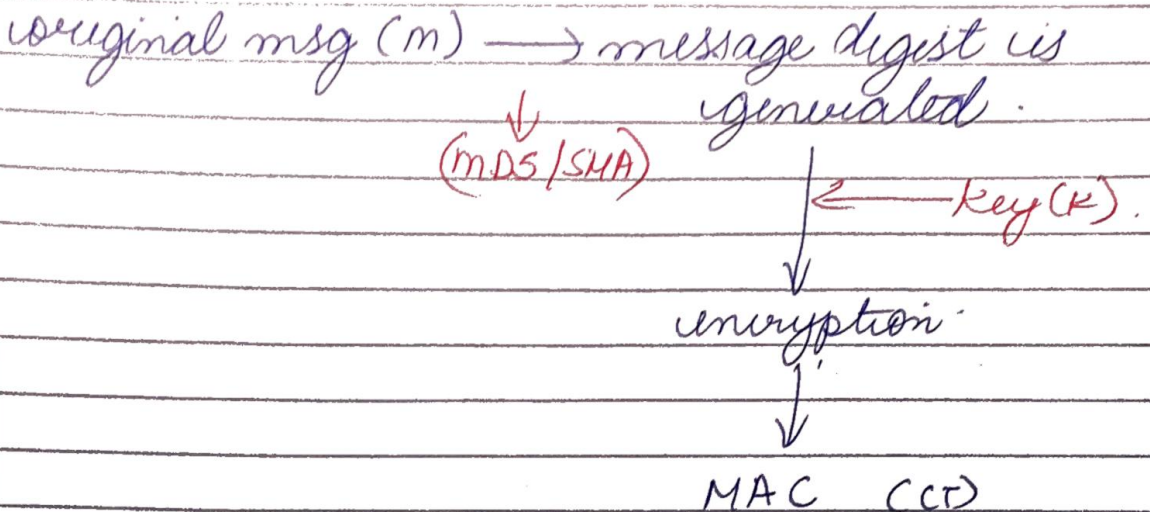 original msg (m) → message digest is
generated.
↓
(MD5/SHA)
← key(K).
encryption
↓
MAC (CT)